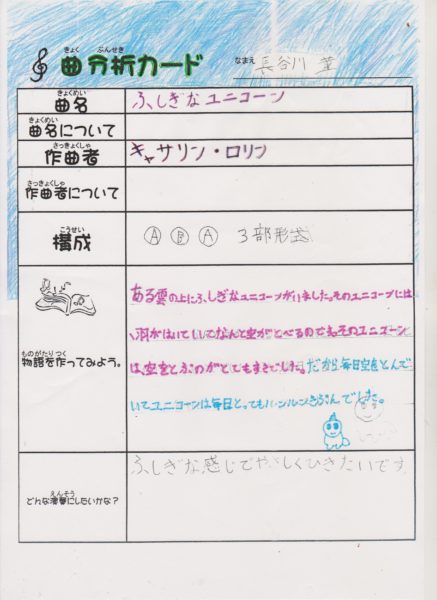 きょく ぶんせき
曲分析カード
なまえ 長谷川
きょくめい
曲名 ふしぎなユニコーン
きょくめい
曲名について
さっきょくしゃ
作曲者 キャサリン・ロリン
さっきょくしゃ
作曲者について
こうせい
構成 Ⓐ Ⓑ Ⓐ 3部形式
ある雲の上にふしぎなユニコーンがいました。そのユニコーンには
、羽がはいていてなんと空がとべるのです。そのユニコーン
は、空をとぶのがとてもすきでした。だから毎日空をとんで
いてユニコーンは毎日とってもルンルンきぶんでした。
ものがたり つく
物語を作ってみよう。
ふしぎな感じでやさしくひきたいです
えんそう
どんな演奏にしたいかな?